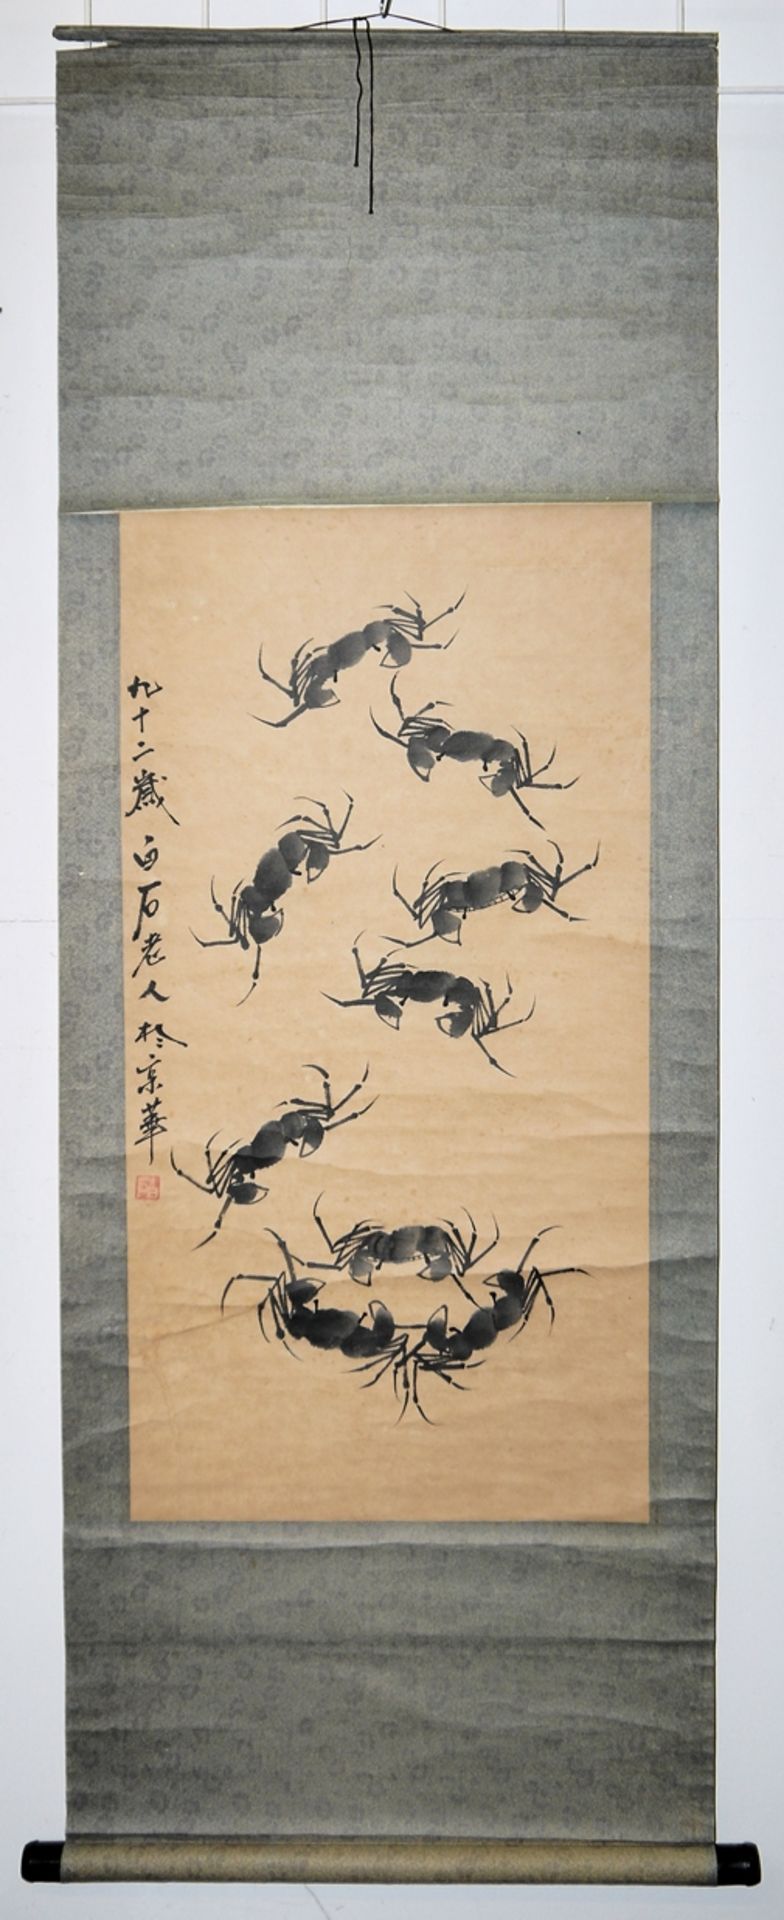 九十二歲白石老人於京華